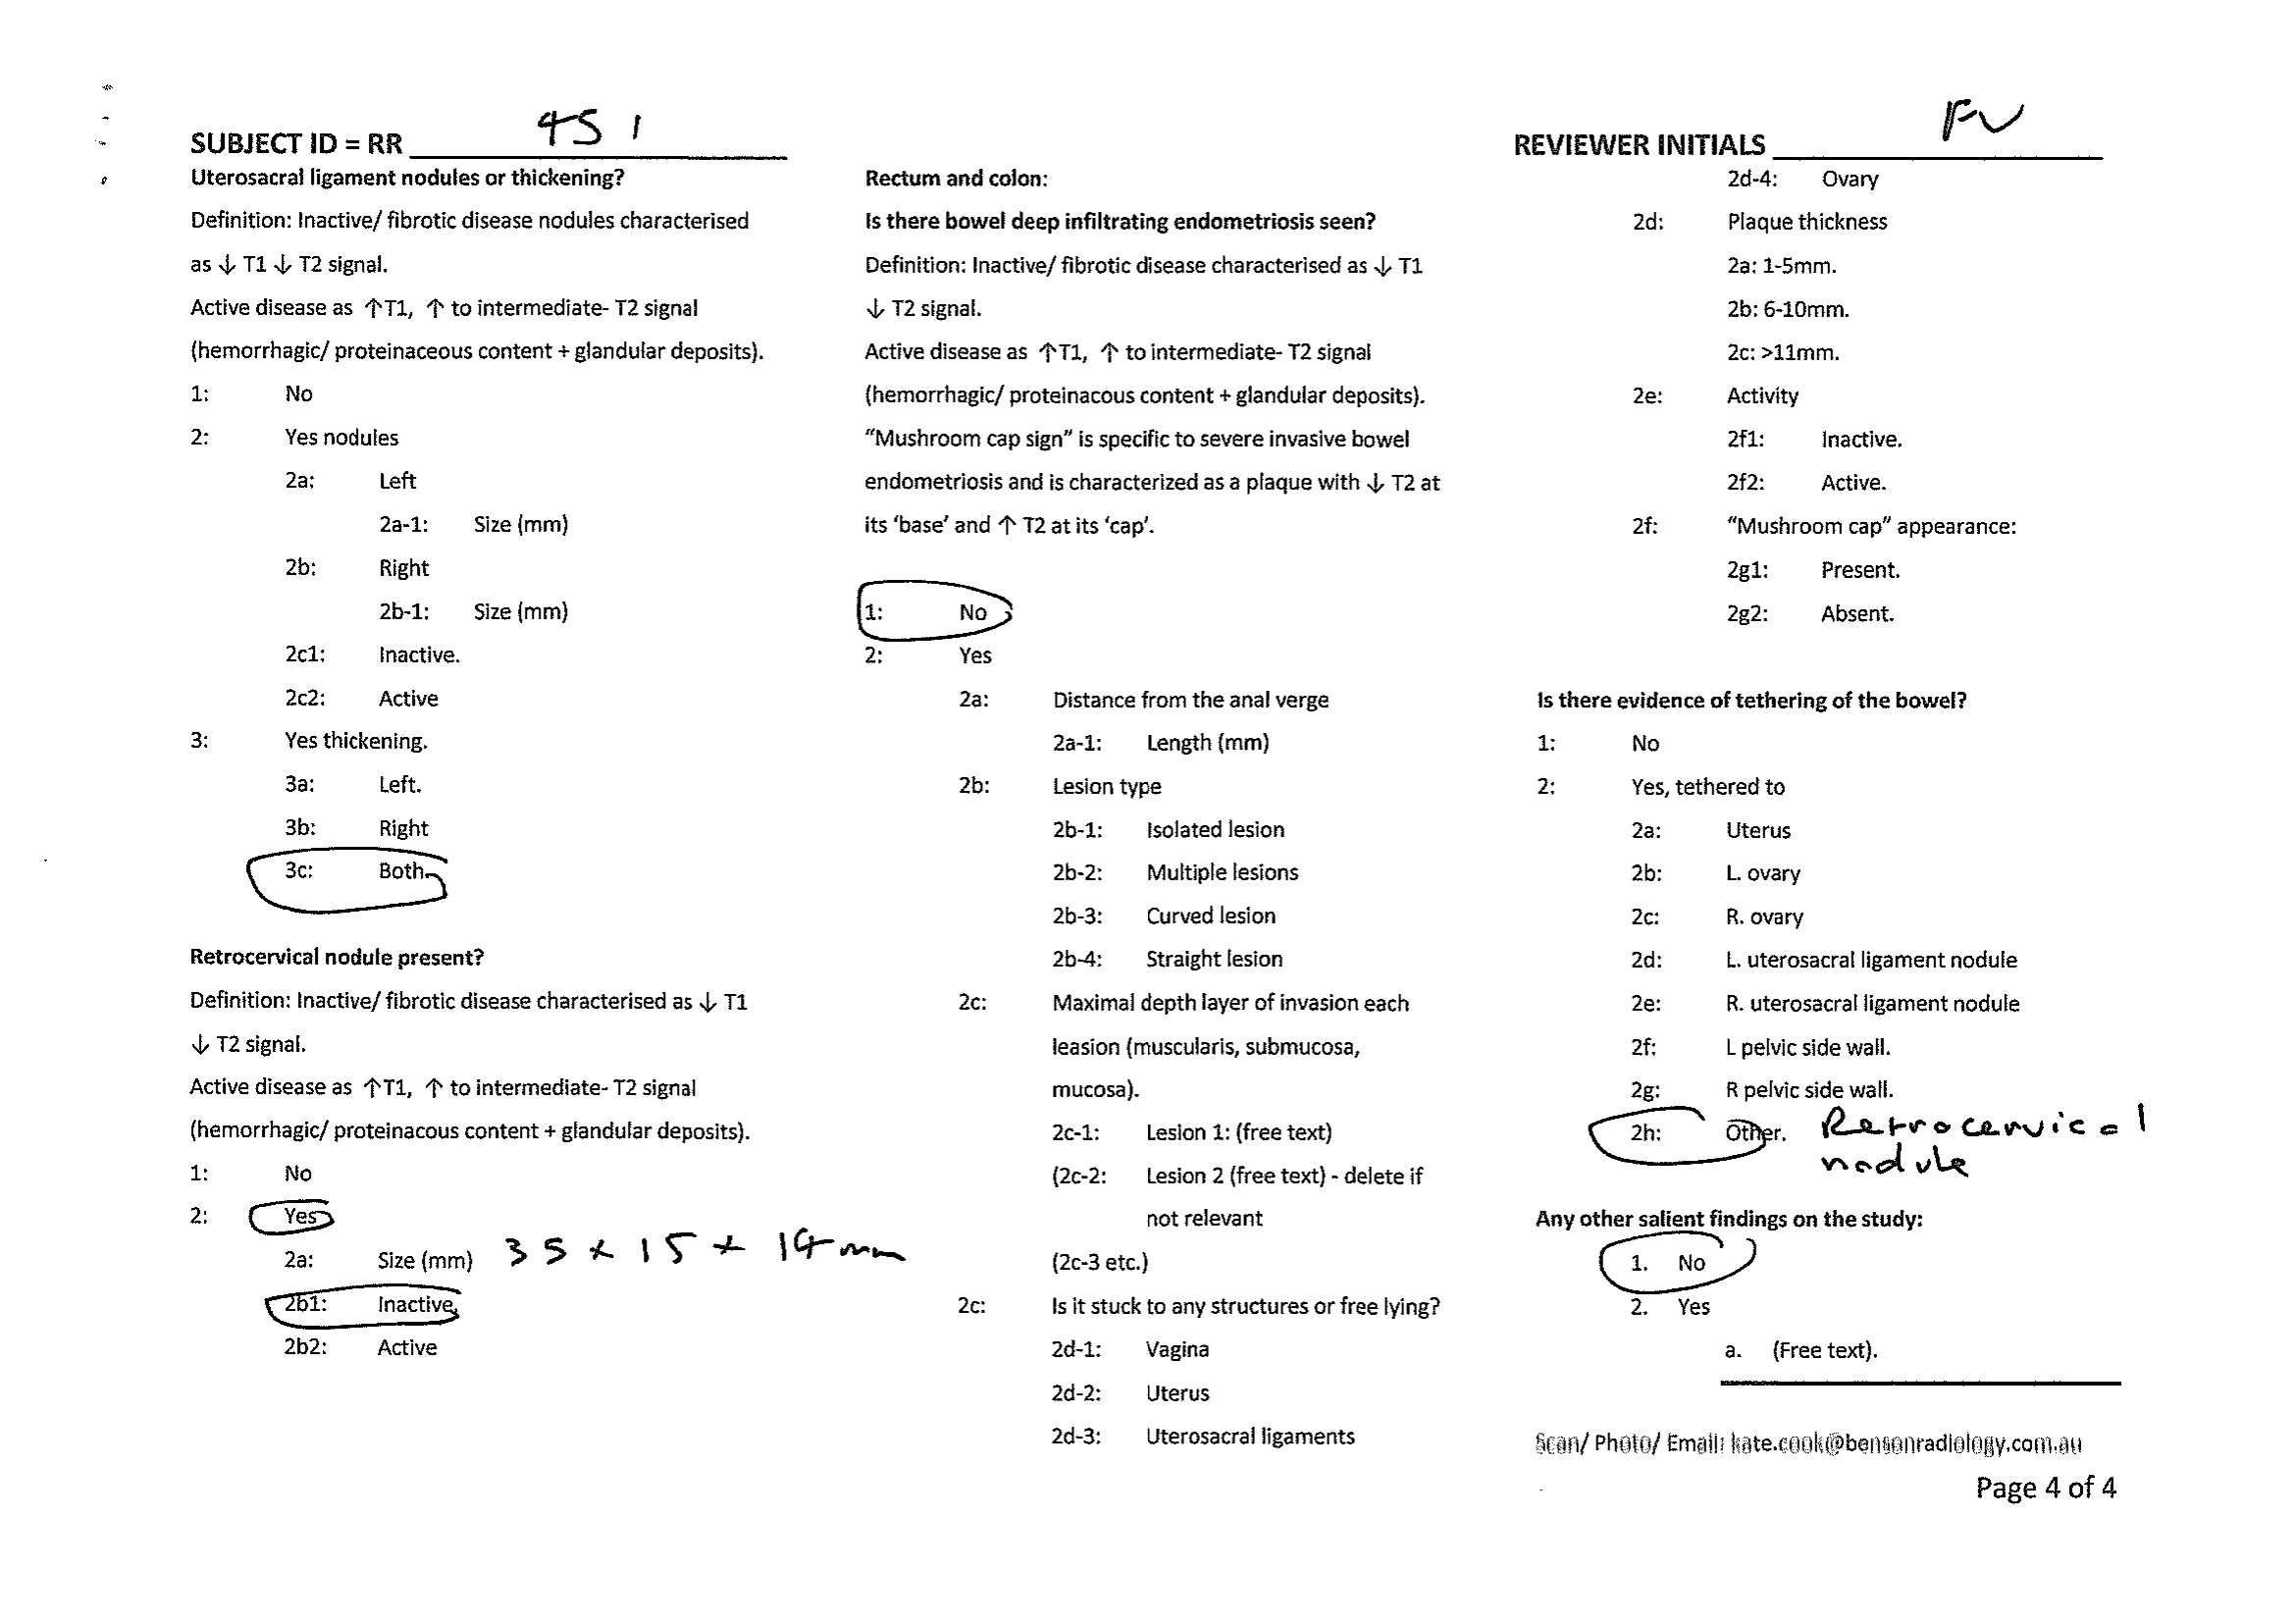 SUBJECT ID = RR 451
REVIEWER INITIALS FV
Uterosacral ligament nodules or thickening?
Definition: Inactive/ fibrotic disease nodules characterised
as ↓ T1 ↓ T2 signal.
Active disease as ↑T1, ↑ to intermediate- T2 signal
(hemorrhagic/ proteinaceous content + glandular deposits).
1: No
2: Yes nodules
2a: Left
2a-1: Size (mm)
2b: Right
2b-1: Size (mm)
2c1: Inactive.
2c2: Active
3: Yes thickening.
3a: Left.
3b: Right
3c: Both.
Retrocervical nodule present?
Definition: Inactive/ fibrotic disease characterised as ↓ T1
↓ T2 signal.
Active disease as ↑T1, ↑ to intermediate- T2 signal
(hemorrhagic/ proteinacous content + glandular deposits).
1: No
2: Yes
2a: Size (mm) 35 x 15 x 14 mm
2b1: Inactive.
2b2: Active
Rectum and colon:
Is there bowel deep infiltrating endometriosis seen?
Definition: Inactive/ fibrotic disease characterised as ↓ T1
↓ T2 signal.
Active disease as ↑T1, ↑ to intermediate- T2 signal
(hemorrhagic/ proteinacous content + glandular deposits).
“Mushroom cap sign” is specific to severe invasive bowel
endometriosis and is characterized as a plaque with ↓ T2 at
its ‘base’ and ↑ T2 at its ‘cap’.
1: No
2: Yes
2a: Distance from the anal verge
2a-1: Length (mm)
2b: Lesion type
2b-1: Isolated lesion
2b-2: Multiple lesions
2b-3: Curved lesion
2b-4: Straight lesion
2c: Maximal depth layer of invasion each
leasion (muscularis, submucosa,
mucosa).
2c-1: Lesion 1: (free text)
(2c-2: Lesion 2 (free text) - delete if
not relevant
(2c-3 etc.)
2c: Is it stuck to any structures or free lying?
2d-1: Vagina
2d-2: Uterus
2d-3: Uterosacral ligaments
2d-4: Ovary
2d: Plaque thickness
2a: 1-5mm.
2b: 6-10mm.
2c: >11mm.
2e: Activity
2f1: Inactive.
2f2: Active.
2f: “Mushroom cap” appearance:
2g1: Present.
2g2: Absent.
Is there evidence of tethering of the bowel?
1: No
2: Yes, tethered to
2a: Uterus
2b: L. ovary
2c: R. ovary
2d: L. uterosacral ligament nodule
2e: R. uterosacral ligament nodule
2f: L pelvic side wall.
2g: R pelvic side wall.
2h: Other. Retrocervical
nodule
Any other salient findings on the study:
1. No
2. Yes
a. (Free text).
Scan/ Photo/ Email: kate.cook@bensonradiology.com.au
Page 4 of 4